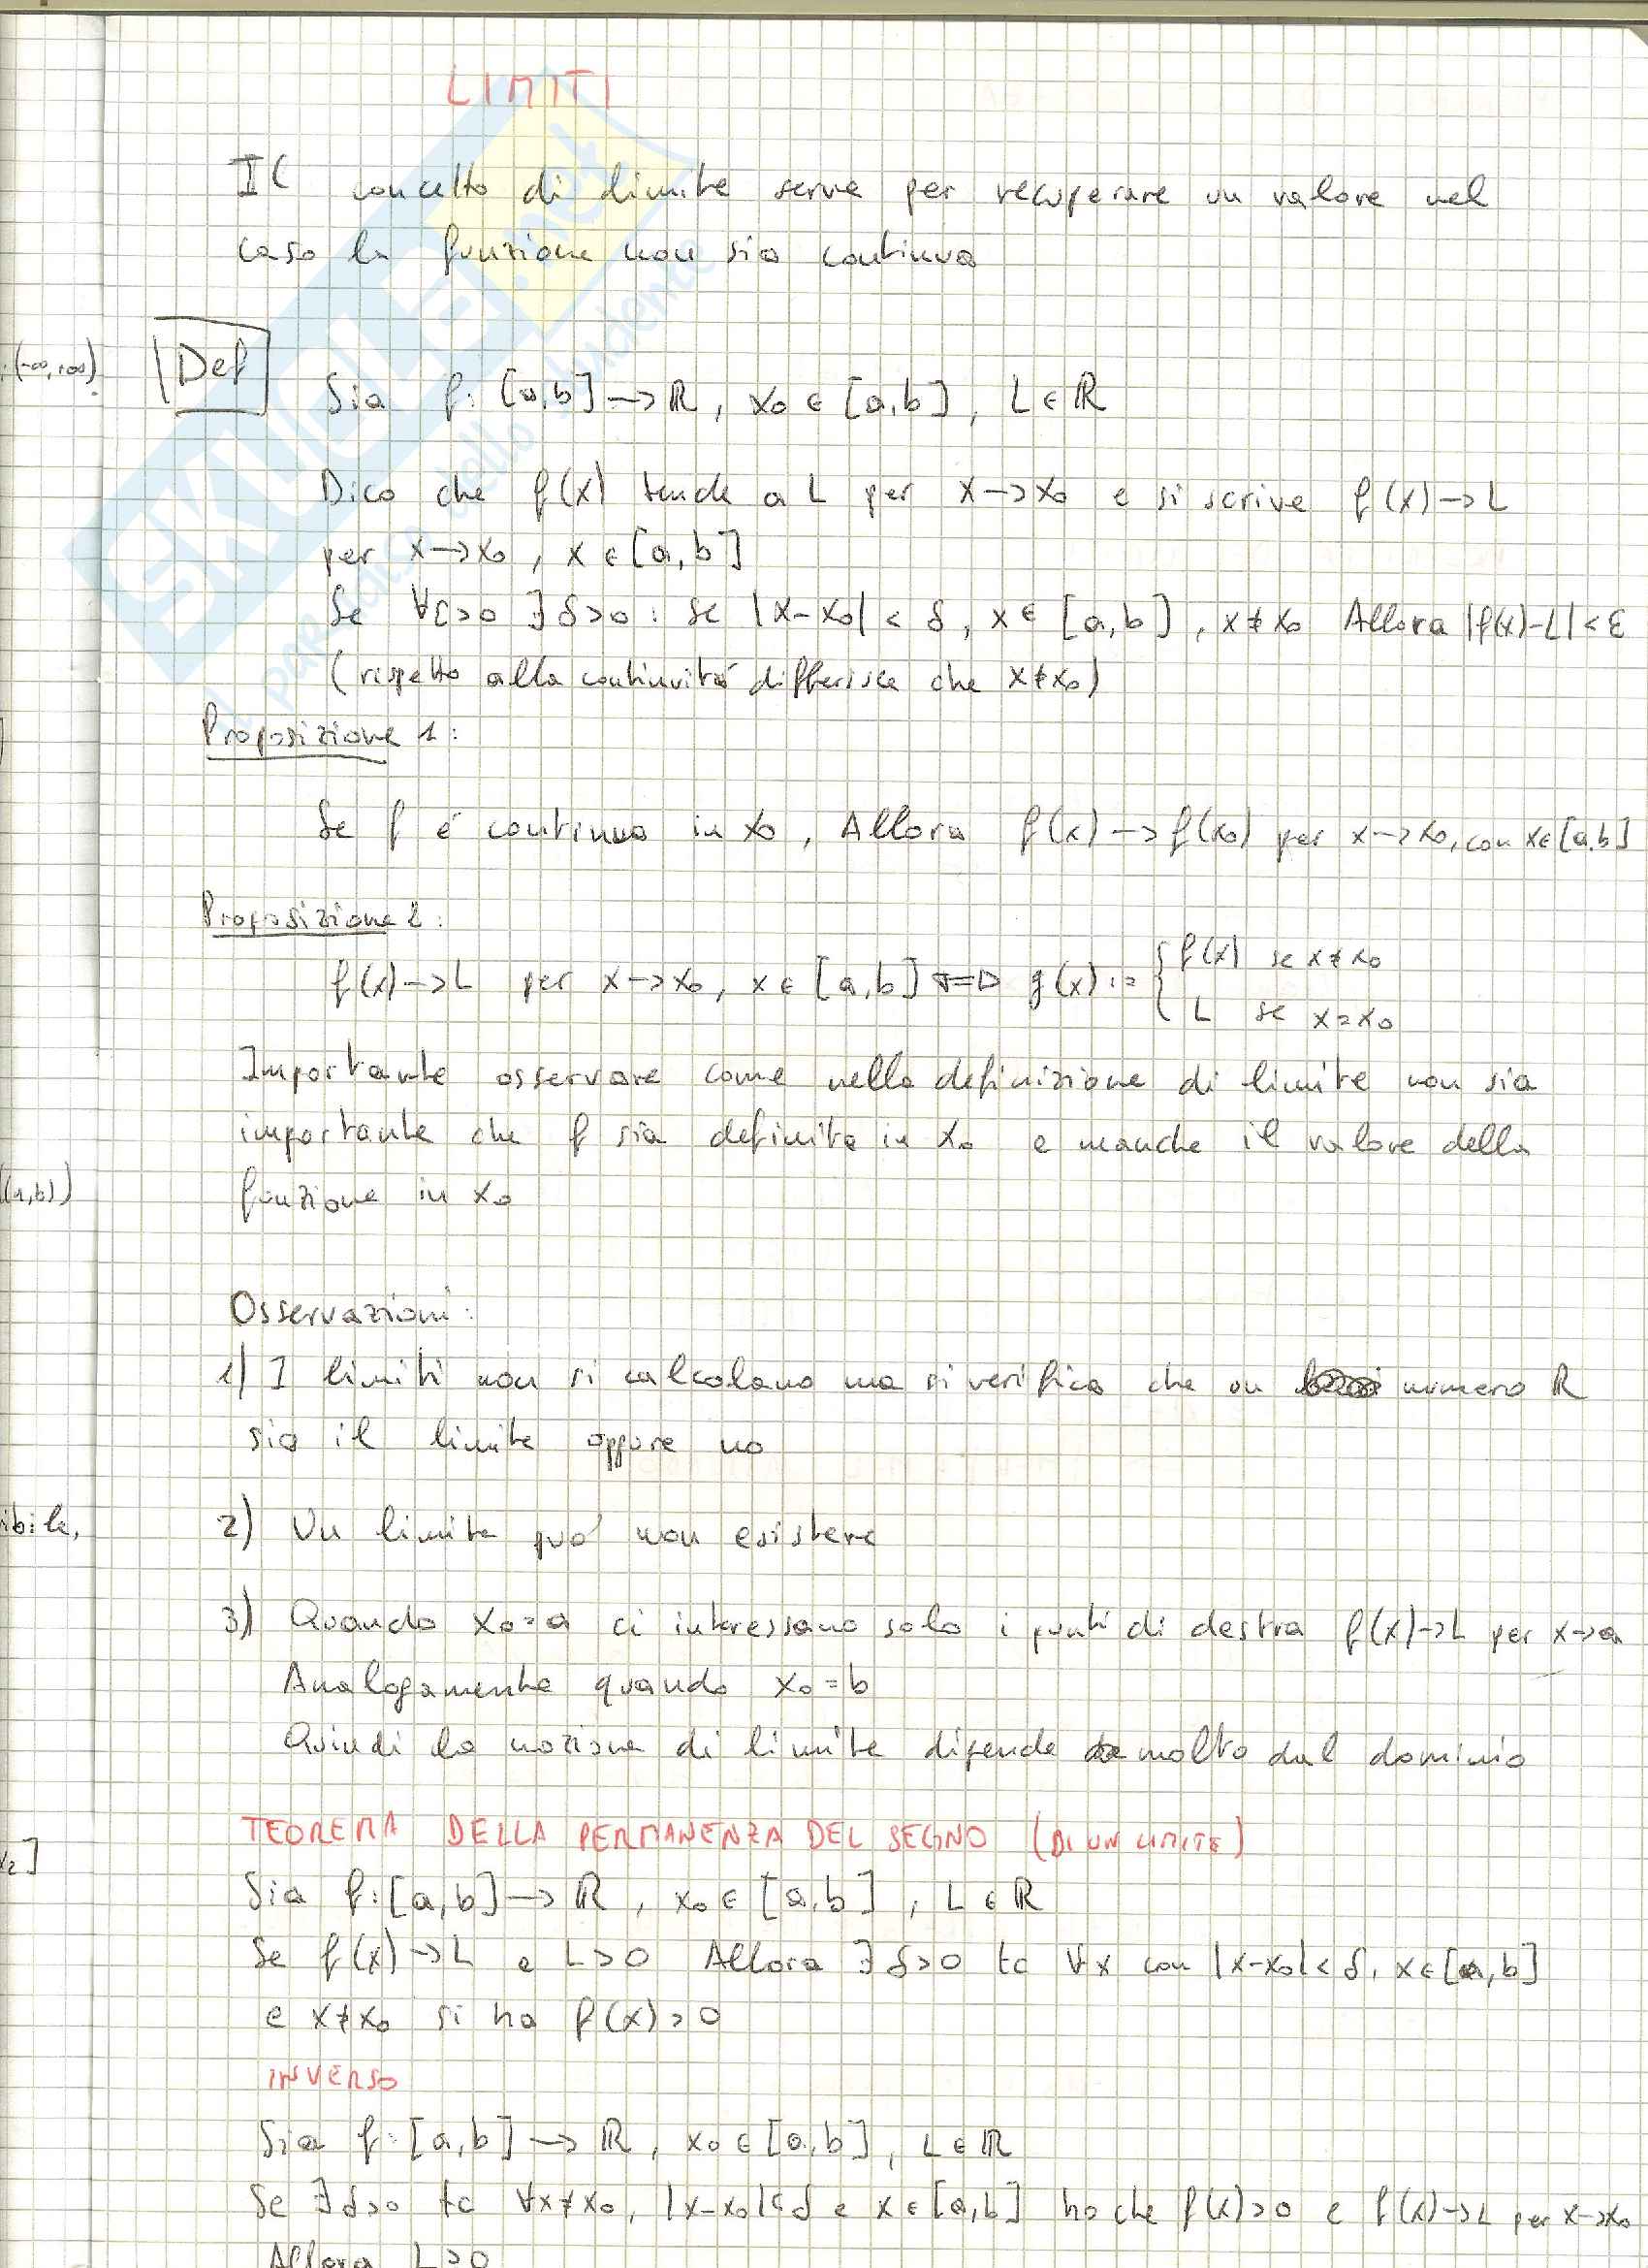 LIMITI
Il concetto di limite serve per recuperare un valore nel
caso la funzione non sia continua
(-∞,+∞)
Def
Sia f: [a,b] → ℝ, x₀ ∈ [a,b], L ∈ ℝ
Dico che f(x) tende a L per x → x₀ e si scrive f(x) → L
per x → x₀, x ∈ [a,b]
Se ∀ε>0 ∃ δ>0 : se |x-x₀| < δ, x ∈ [a,b], x≠x₀ Allora |f(x)-L| < ε
(rispetto alla continuitá differisce che x≠x₀)
Proposizione 1:
Se f é continua in x₀, Allora f(x) → f(x₀) per x → x₀, con x∈[a,b]
Proposizione 2:
f(x) → L per x → x₀, x ∈ [a,b] <=> g(x) := { f(x) se x≠x₀
L se x=x₀
Importante osservare come nella definizione di limite non sia
importante che f sia definita in x₀ e manche il valore della
funzione in x₀
(a,b))
Osservazioni:
1) I limiti non si calcolano ma si verifica che un numero ℝ
sia il limite oppure no
ibile,
2) Un limite puó non esistere
3) Quando x₀=a ci interessano solo i punti di destra f(x)→L per x→a
Analogamente quando x₀=b
Quindi la nozione di limite dipende molto dal dominio
TEOREMA DELLA PERMANENZA DEL SEGNO (DI UN LIMITE)
x₂]
Sia f:[a,b] → ℝ, x₀ ∈ [a,b], L ∈ ℝ
Se f(x) → L e L>0 Allora ∃ δ>0 tc ∀x con |x-x₀| < δ, x∈[a,b]
e x≠x₀ si ha f(x)>0
INVERSO
Sia f:[a,b] → ℝ, x₀ ∈ [a,b], L ∈ ℝ
Se ∃ δ>0 tc ∀x≠x₀, |x-x₀|<δ e x ∈ [a,b] ho che f(x)>0 e f(x)→L per x→x₀
Allora L>0
SKUOLA.net
il paradiso dello studente